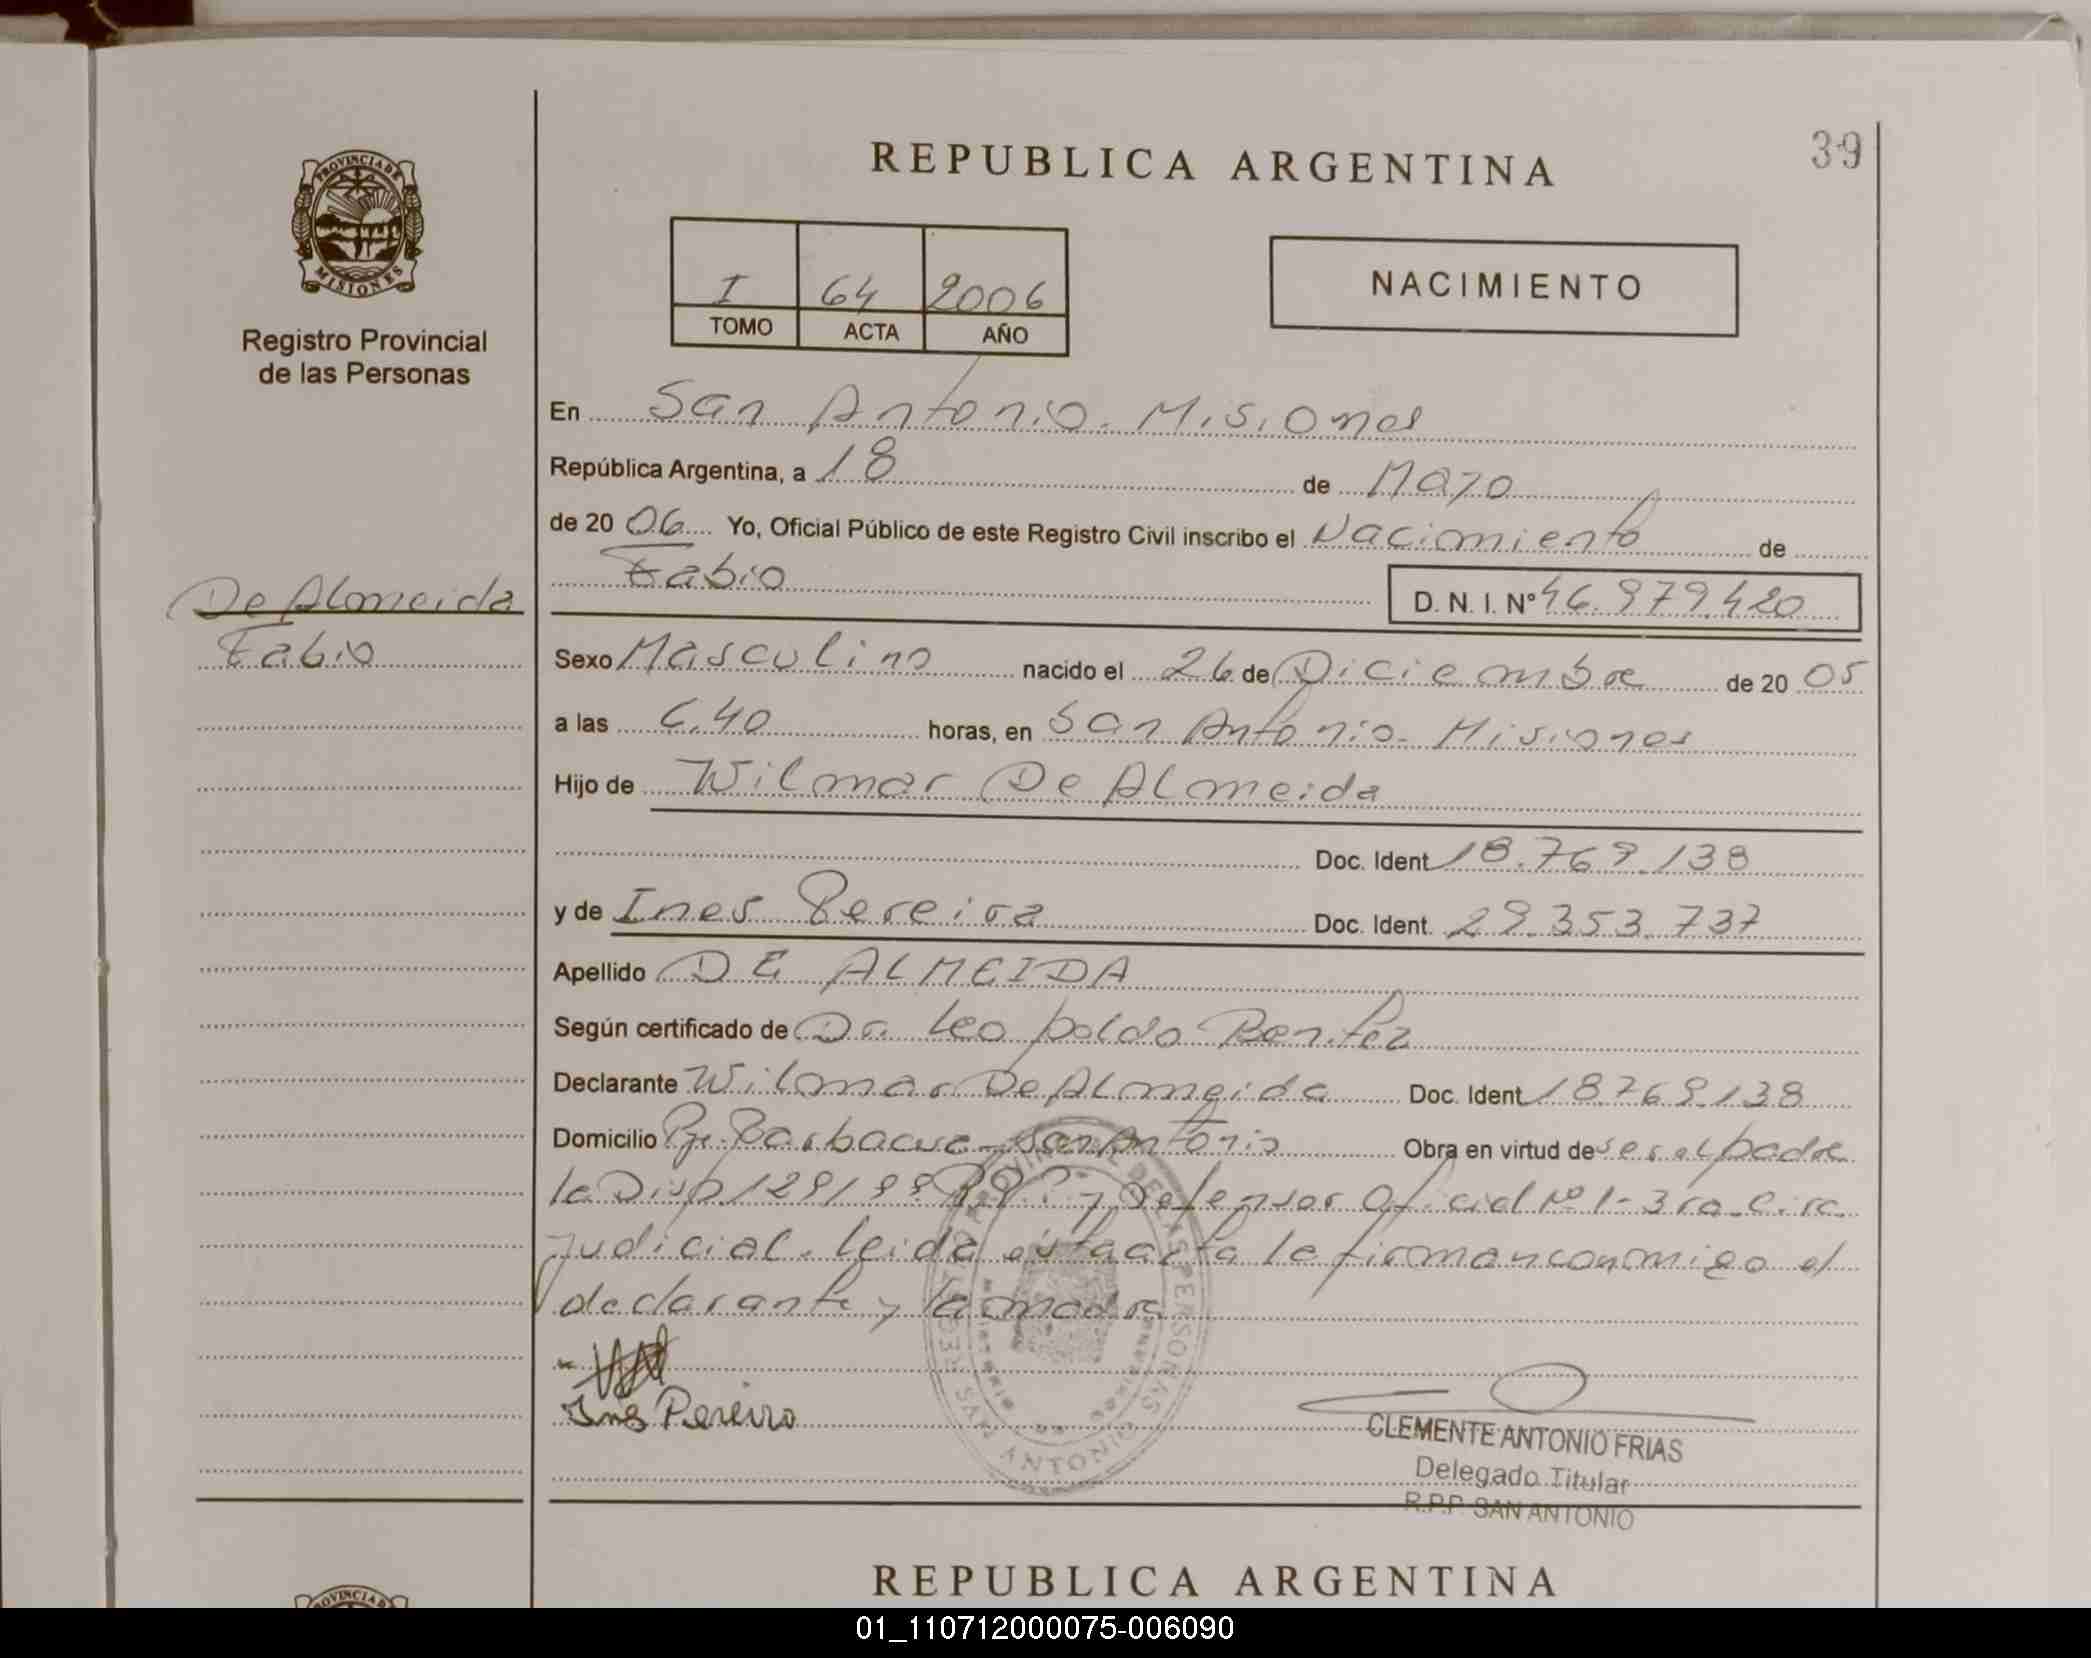 39
REPUBLICA ARGENTINA
PROVINCIA DE
MISIONES
Registro Provincial
de las Personas
I 64 2006
TOMO ACTA AÑO
NACIMIENTO
En San Antonio. Misiones
República Argentina, a 18 de Mayo
de 20 06 Yo, Oficial Público de este Registro Civil inscribo el Nacimiento de
Fabio D. N. I. Nº 46.979.420
De Almeida
Fabio
Sexo Masculino nacido el 26 de Diciembre de 20 05
a las 6.40 horas, en San Antonio. Misiones
Hijo de Wilmar De Almeida
Doc. Ident 18.769.138
y de Ines Pereira Doc. Ident. 29.353.737
Apellido DE ALMEIDA
Según certificado de Dr. Leopoldo Benitez
Declarante Wilmar De Almeida Doc. Ident 18.769.138
Domicilio Barbacua San Antonio Obra en virtud de ser el padre
la Disp 129/99 y Defensor Oficial Nº 1-3ra. Circ.
Judicial. leida esta acta la firman conmigo el
declarante y la madre
Ines Pereira
SAN ANTONIO
CLEMENTE ANTONIO FRIAS
Delegado Titular
R.P.P. SAN ANTONIO
REPUBLICA ARGENTINA
PROVINCIA D
01_110712000075-006090